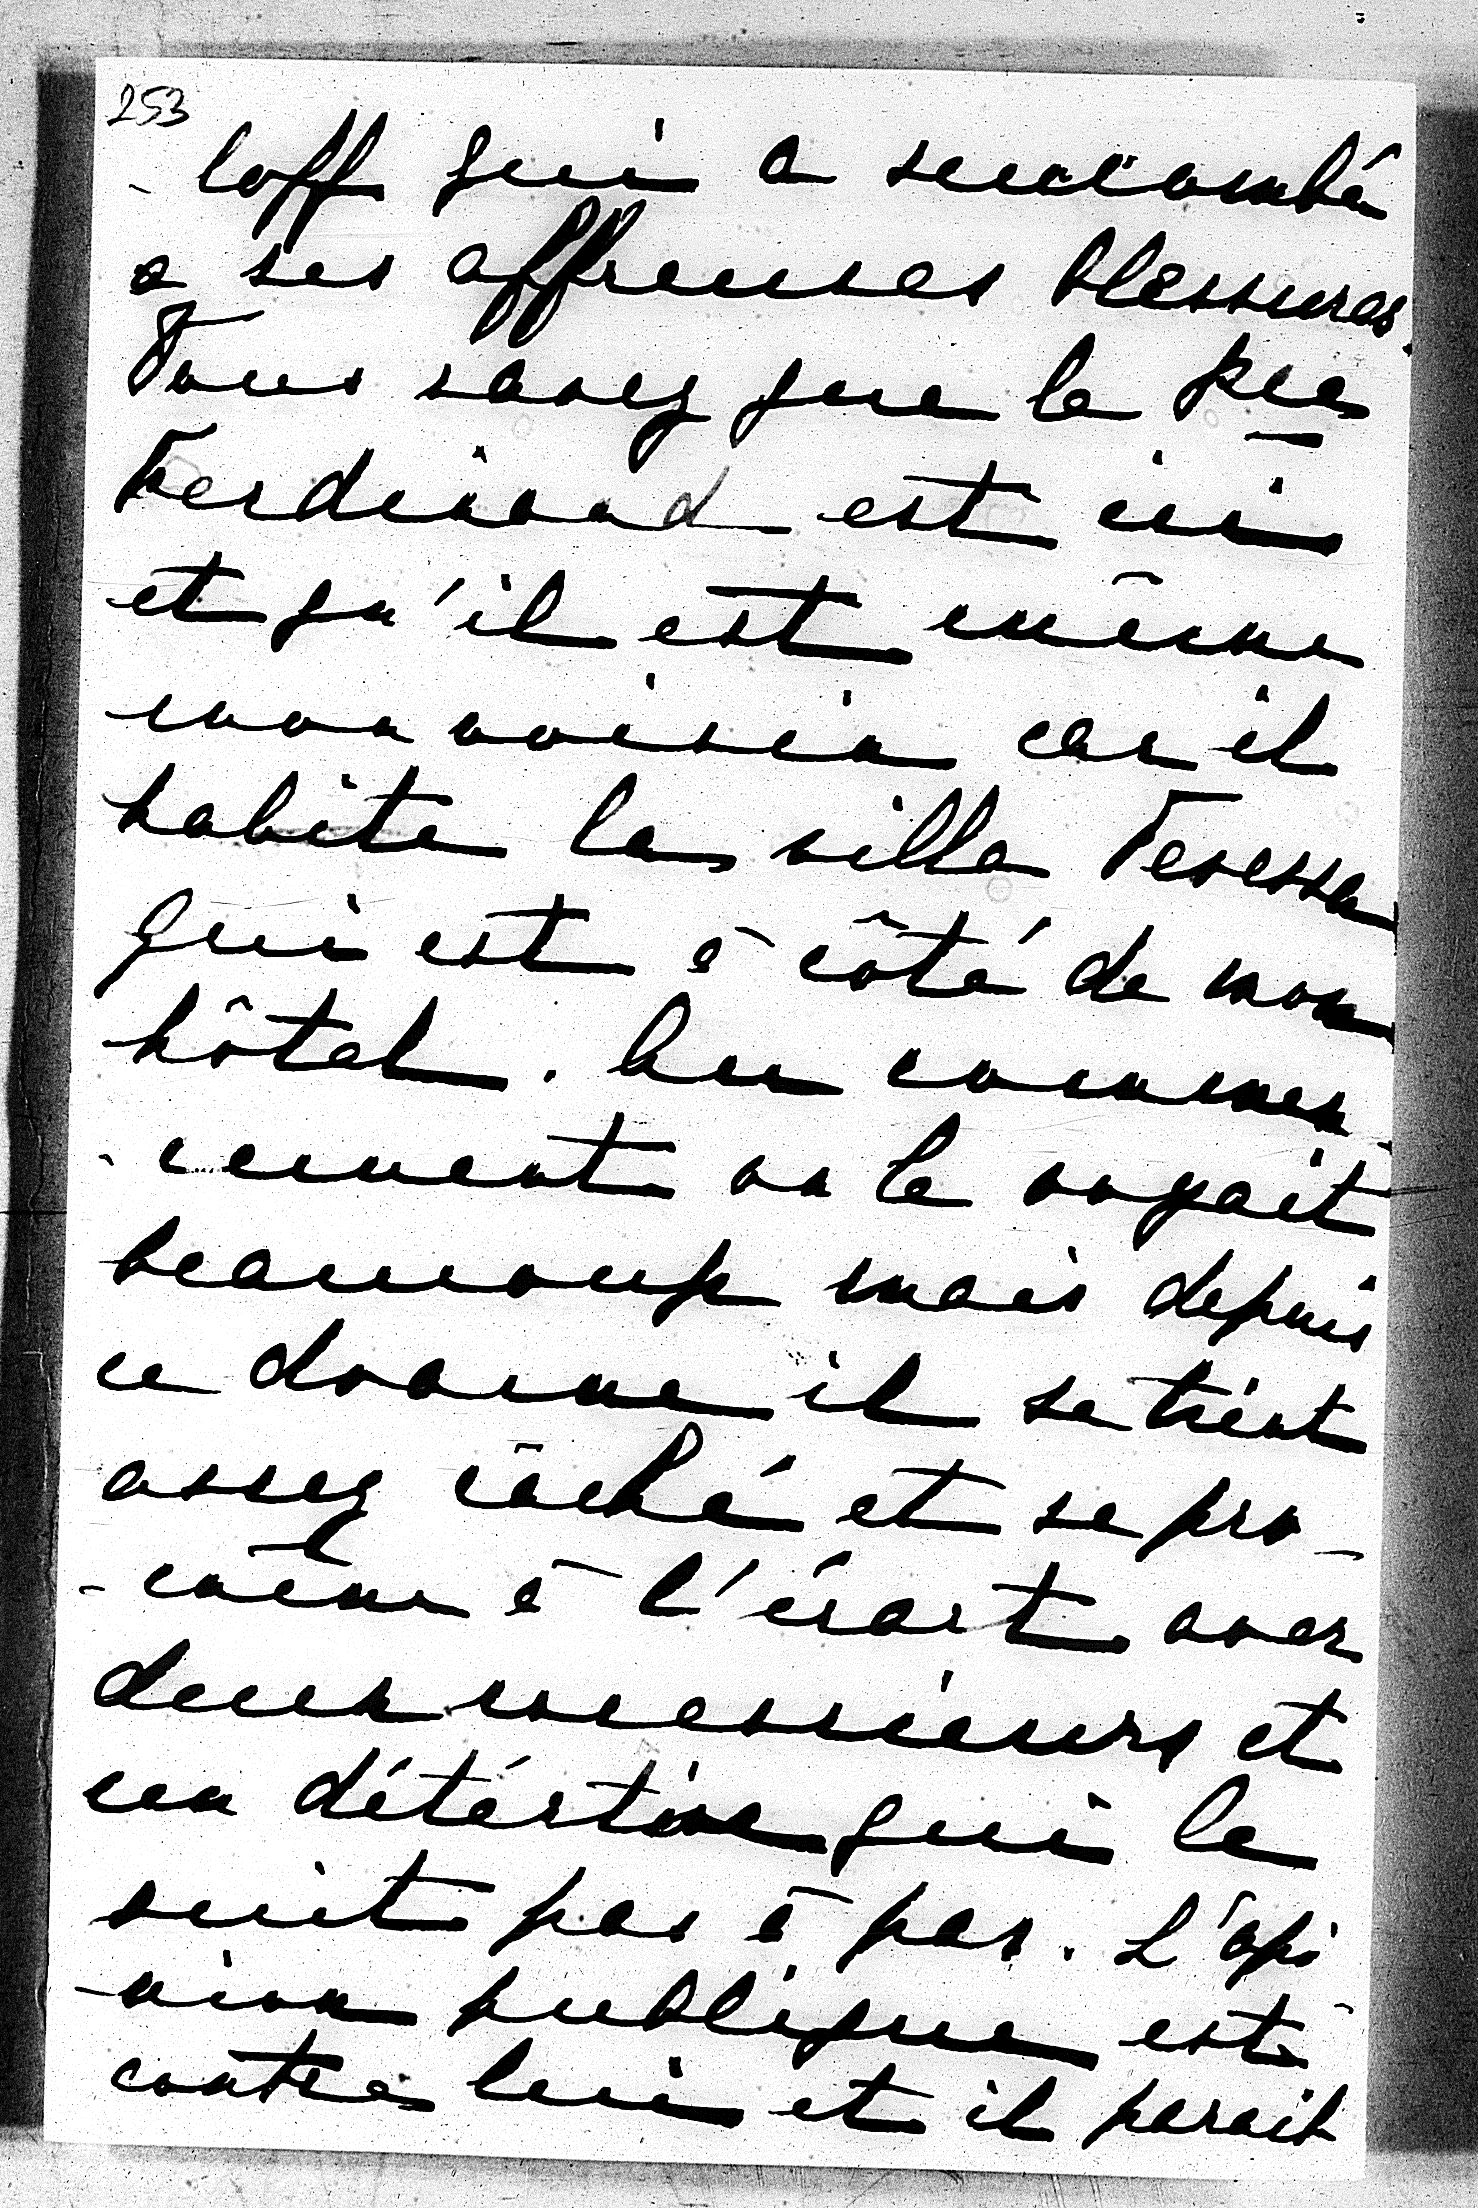 253
-loff qui a succombé
a ses affreuses blessures.
Vous savez que le Pce
Ferdinand est ici
et qu'il est même
mon voisin car il
habite la villa Teressa
qui est à côté de mon
hôtel. Au commen-
-cement on le voyait
beaucoup mais depuis
ce drame il se tient
assez câché et se pro-
-mène à l'écart avec
deux messieurs et
un détéctive qui le
suit pas à pas. L'opi-
-nion publique est
contre lui et il parait